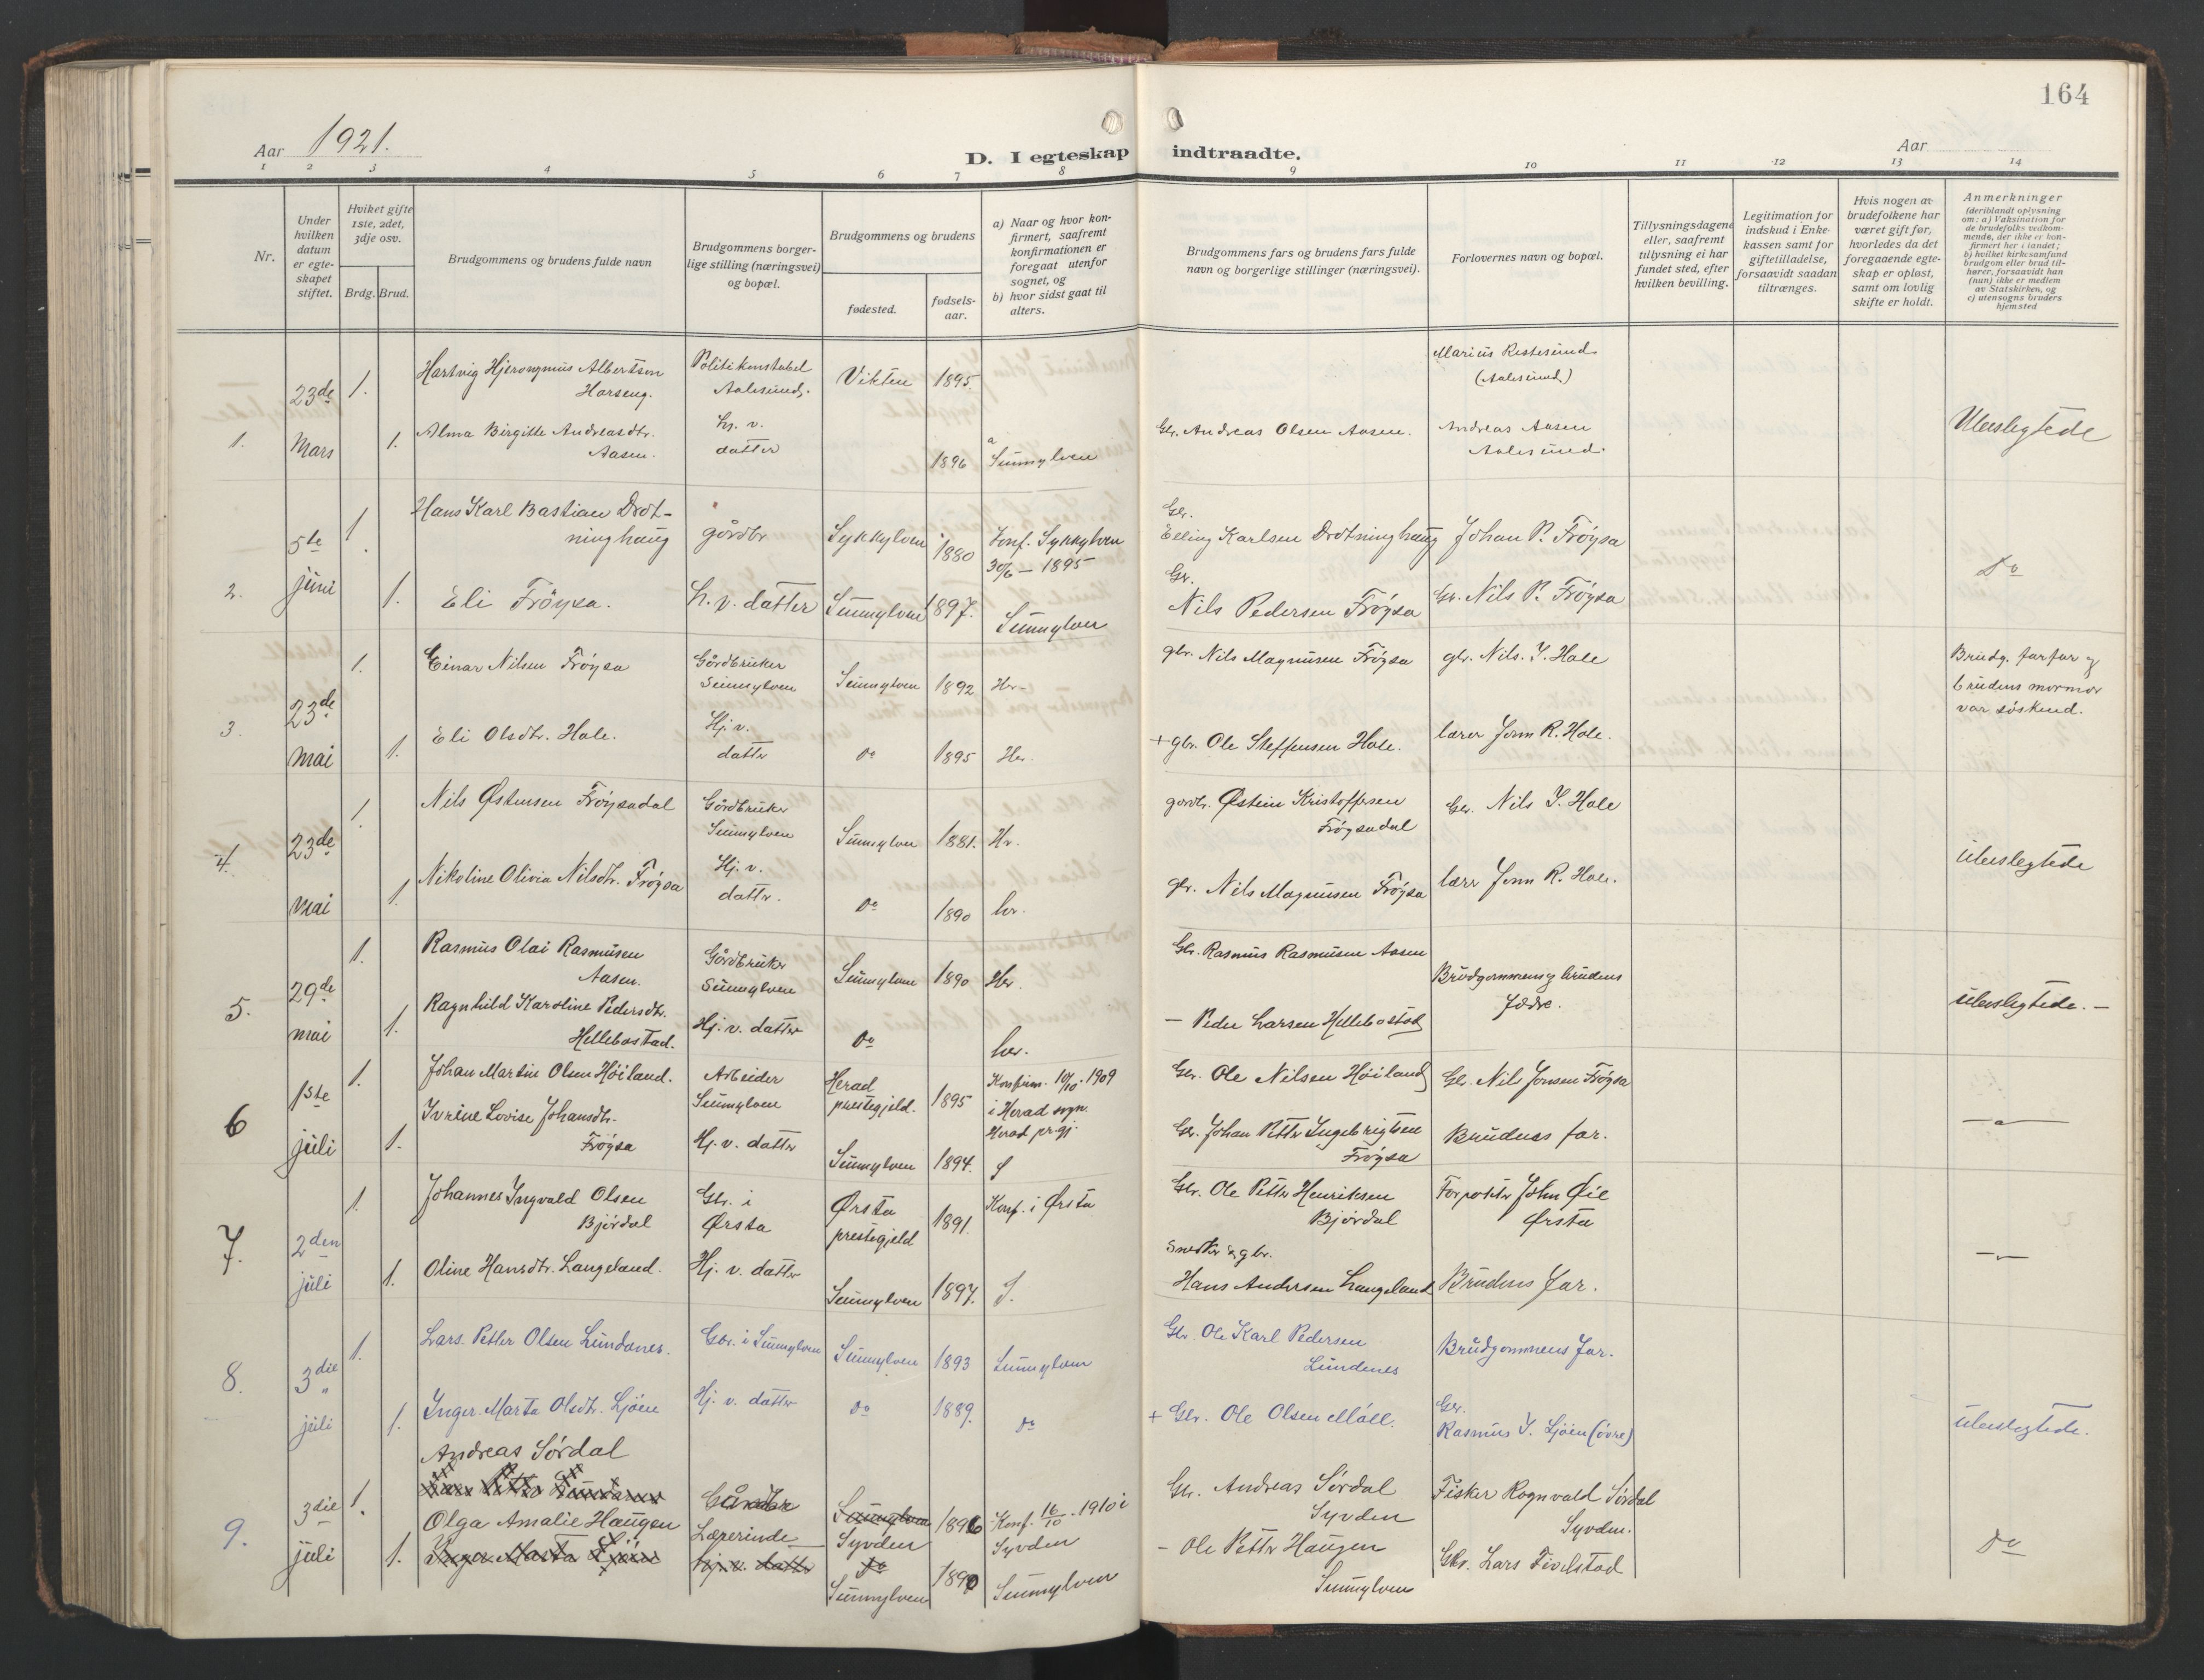 164
Aar 1921.
D. I egteskap indtraadte.
Aar
1 2 3 4 5 6 7 8 9 10 11 12 13 14
Nr.
Under hvilken datum er egteskapet stiftet.
Hvilket gifte 1ste, 2det, 3dje osv.
Brdg. Brud.
Brudgommens og brudens fulde navn
Brudgommens borgerlige stilling (næringsvei) og bopæl.
Brudgommens og brudens
fødested.
fødsels-aar.
a) Naar og hvor konfirmert, saafremt konfirmationen er foregaat utenfor sognet, og
b) hvor sidst gaat til alters.
Brudgommens fars og brudens fars fulde navn og borgerlige stillinger (næringsvei).
Forlovernes navn og bopæl.
Tillysningsdagene eller, saafremt tillysning ei har fundet sted, efter hvilken bevilling.
Legitimation for indskud i Enkekassen samt for giftetilladelse, forsaavidt saadan tiltrænges.
Hvis nogen av brudefolkene har været gift før, hvorledes da det foregaaende egteskap er opløst, samt om lovlig skifte er holdt.
Anmerkninger
(deriblandt oplysning om: a) Vaksination for de brudefolks vedkommende, der ikke er konfirmert her i landet; b) hvilket kirkesamfund brudgom eller brud tilhører, forsaavidt han (hun) ikke er medlem av Statskirken, og c) utensogns bruders hjemsted
1. 23de Mars
1. Hartvig Hjeronymus Albertsen Horseng. Politikonstabel Aalesund. Vikten 1895 Marius Restesund (Aalesund)
1. Alma Birgitte Andreasdtr. Aasen. h. v. datter 1896 a Sunnylven Gbr. Andreas Olsen Aasen. Andreas Aasen Aalesund. Ubeslegtede
2. 5te juni
1. Hans Karl Bastian Drotninghaug gårdbr Sykkylven 1880 Konf. Sykkylven 30/6 – 1895 Gbr. Elling Karlsen Drotninghaug Johan P. Frøysa
1. Eli Frøysa. h. v. datter Sunnylven 1897. Sunnylven Gbr. Nils Pedersen Frøysa Gbr. Nils P. Frøysa Do
3. 23de mai
1. Einar Nilsen Frøysa Gårdbruker Sunnylven Sunnylven 1892 Her- gbr. Nils Magnusen Frøysa gbr. Nils. J. Hole Brudg. farfar og brudens mormor var søskend.
1. Eli Olsdtr. Hole. Hj. v. datter Do 1895 Her. + gbr. Ole Steffensen Hole. lærer Jonn R. Hole.
4. 23de mai
1. Nils Østensen Frøysadal Gårdbruker Sunnylven Sunnylven 1881. Hr. gardbr. Østein Kristoffersen Frøysadal Gbr. Nils J. Hole
1. Nikoline Olivia Nilsdtr. Frøysa Hj. v. datter. Do 1890 her. gbr. Nils Magnusen Frøysa lærer Jonn R. Hole. Ubeslegtede
5. 29de mai
1. Rasmus Olai Rasmusen Aasen. Gårdbruker Sunnylven Sunnylven 1890 Her. Gbr. Rasmus Rasmusen Aasen Brudgommens og brudens fædre.
1. Ragnhild Karoline Pedersdtr. Hellebostad. Hj. v. datter Do her. – Peder Larsen Hellebostad Ubeslegtede. –
6 1ste juli
1. Johan Martin Olsen Høiland. Arbeider Sunnylven Herad prestegjeld. 1895 Konfirm. 10/10. 1909 i Herad sogn. Herad prgj. Gbr. Ole Nilsen Høiland Gbr. Nils Jonsen Frøysa
1. Ivrine Lovise Johansdtr. Frøysa Hj. v. datter Sunnylven 1894. S Gbr. Johan Petter Ingebrigtsen Frøysa Brudens far. — " —
7. 2den juli
1. Johannes Ingvald Olsen Bjørdal Gbr. i Ørsta Ørsta prestegjeld 1891. Konf. i Ørsta Gbr. Ole Petter Henriksen Bjørdal Forpakter John Øie Ørsta
1. Oline Hansdtr. Langeland. Hj. v. datter Sunnylven 1897. S. Snedker & gbr. Hans Andersen Langeland Brudens far. — " —
8. 3die juli
1. Lars. Petter Olsen Lundanes. Gbr. i Sunnylven Sunnylven 1893 Sunnylven Gbr. Ole Karl Pedersen Lundenes Brudgommens far.
1. Inger. Marta Olsdtr. Ljøen Hj. v. datter Do 1889. Do + Gbr. Ole Olsen Moll. Gbr. Rasmus J. Ljøen (øvre) Ubeslegtede.
9. 3die juli
1. Andreas Sørdal
Lars Petter Lundanes Gårdbr Sunnylven 1896 Konf. 16/10. 1910 i Syvden Gbr. Andreas Sørdal Syvden Fisker Rognvald Sørdal Syvden.
1. Olga Amalie Haugen Lærerinde Syvden
Inger Marta Ljøen hj. v. datter Do Sunnylven 1890 Sunnylven – Ole Petter Haugen Sunnylven Gbr. Lars Fivelstad Do